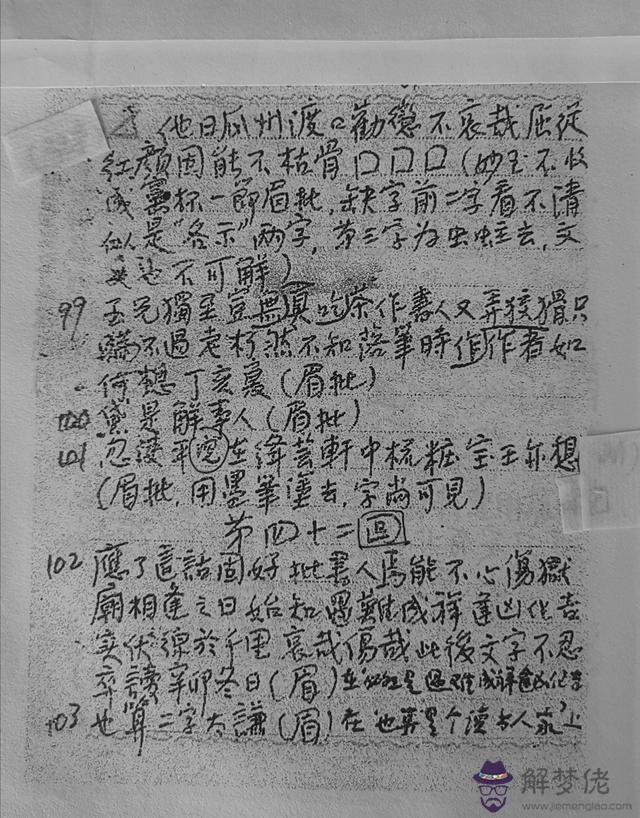 他日瓜州渡口勸懲不哀哉屈従
紅顏固能不枯骨口口口(妙玉不收
成窰杯一節眉批,缺字前二字看不清
似是"各示"兩字,第三字为虫蛀去,文
意也不可解)
99 玉兄獨至豈無真吃茶作書人又弄狡猾只
瞞不過老朽然不知落筆時作作者如
何想丁亥夏(眉批)
100 黛是解事人(眉批)
101 忽使平兒在絳芸軒中梳粧宝玉亦想
(眉批,用墨筆塗去,字尚可見)
第四十二回
102 應了這話固好批書人焉能不心傷獄
廟相逢之日始知遇難成祥逢凶化吉
实伏線於千里哀哉傷哉此後文字不忍
卒讀辛卯冬日(眉)在
103 也算二字太謙(眉)在也算是个读书人家上
解梦佬
www.jiemenglao.com